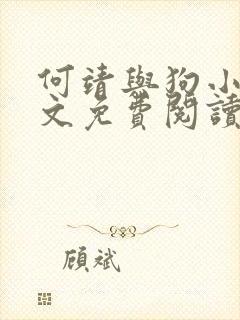 何靖與狗小
文免費閱讀
顧斌